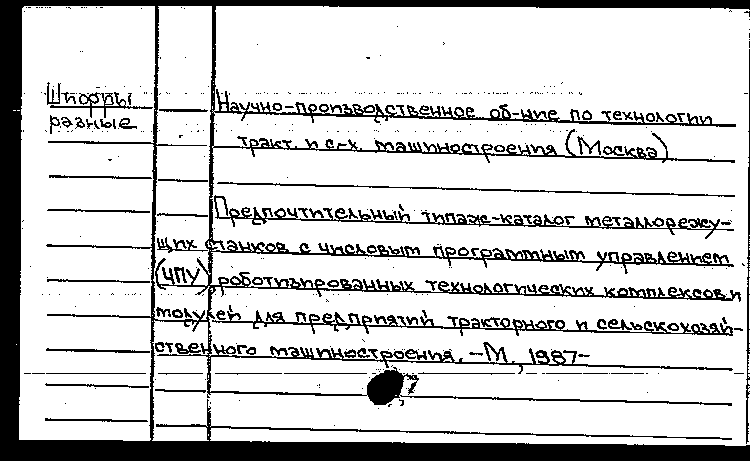 Шпорры
разные
Научно-производственное об-ние по технологии
тракт. и с-х. машиностроения (Москва)
Предпочтительный типаж-каталог металлорежу-
щих станков с числовым программным управлением
(ЧПУ), роботизированных технологических комплексов и
модулей для предприятий тракторного и сельскохозяй-
ственного машиностроения. -М., 1987-